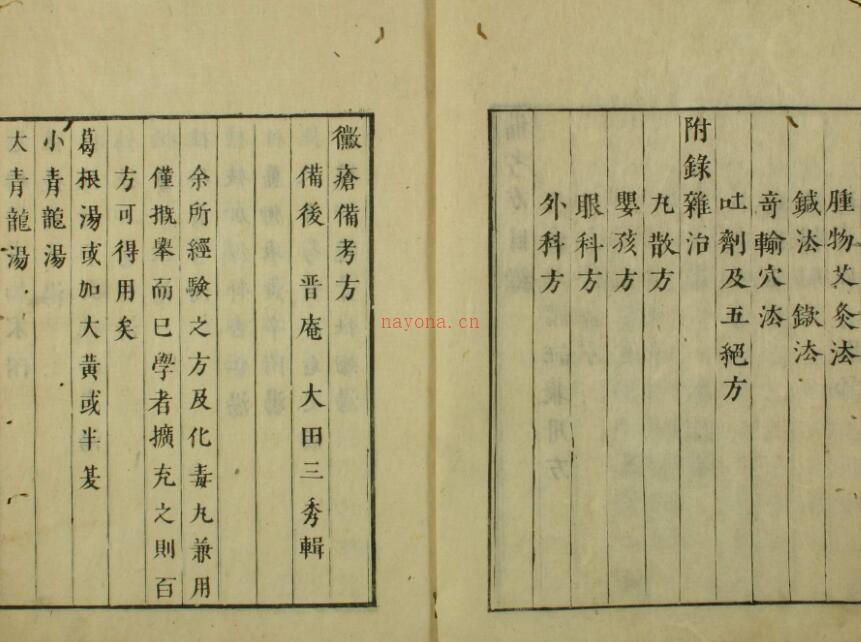 腫物艾灸法
鍼法 錄法
竒輸穴法
吐劑及五絕方
附錄雜治
丸散方
嬰孩方
眼科方
外科方
黴瘡備考方
備後 晋庵大田三秀輯
余所經驗之方及化毒丸兼用
僅摡舉而已學者擴充之則百
方可得用矣
葛根湯或加大黃或半芰
小青龍湯
大青龍湯
nayona.cn